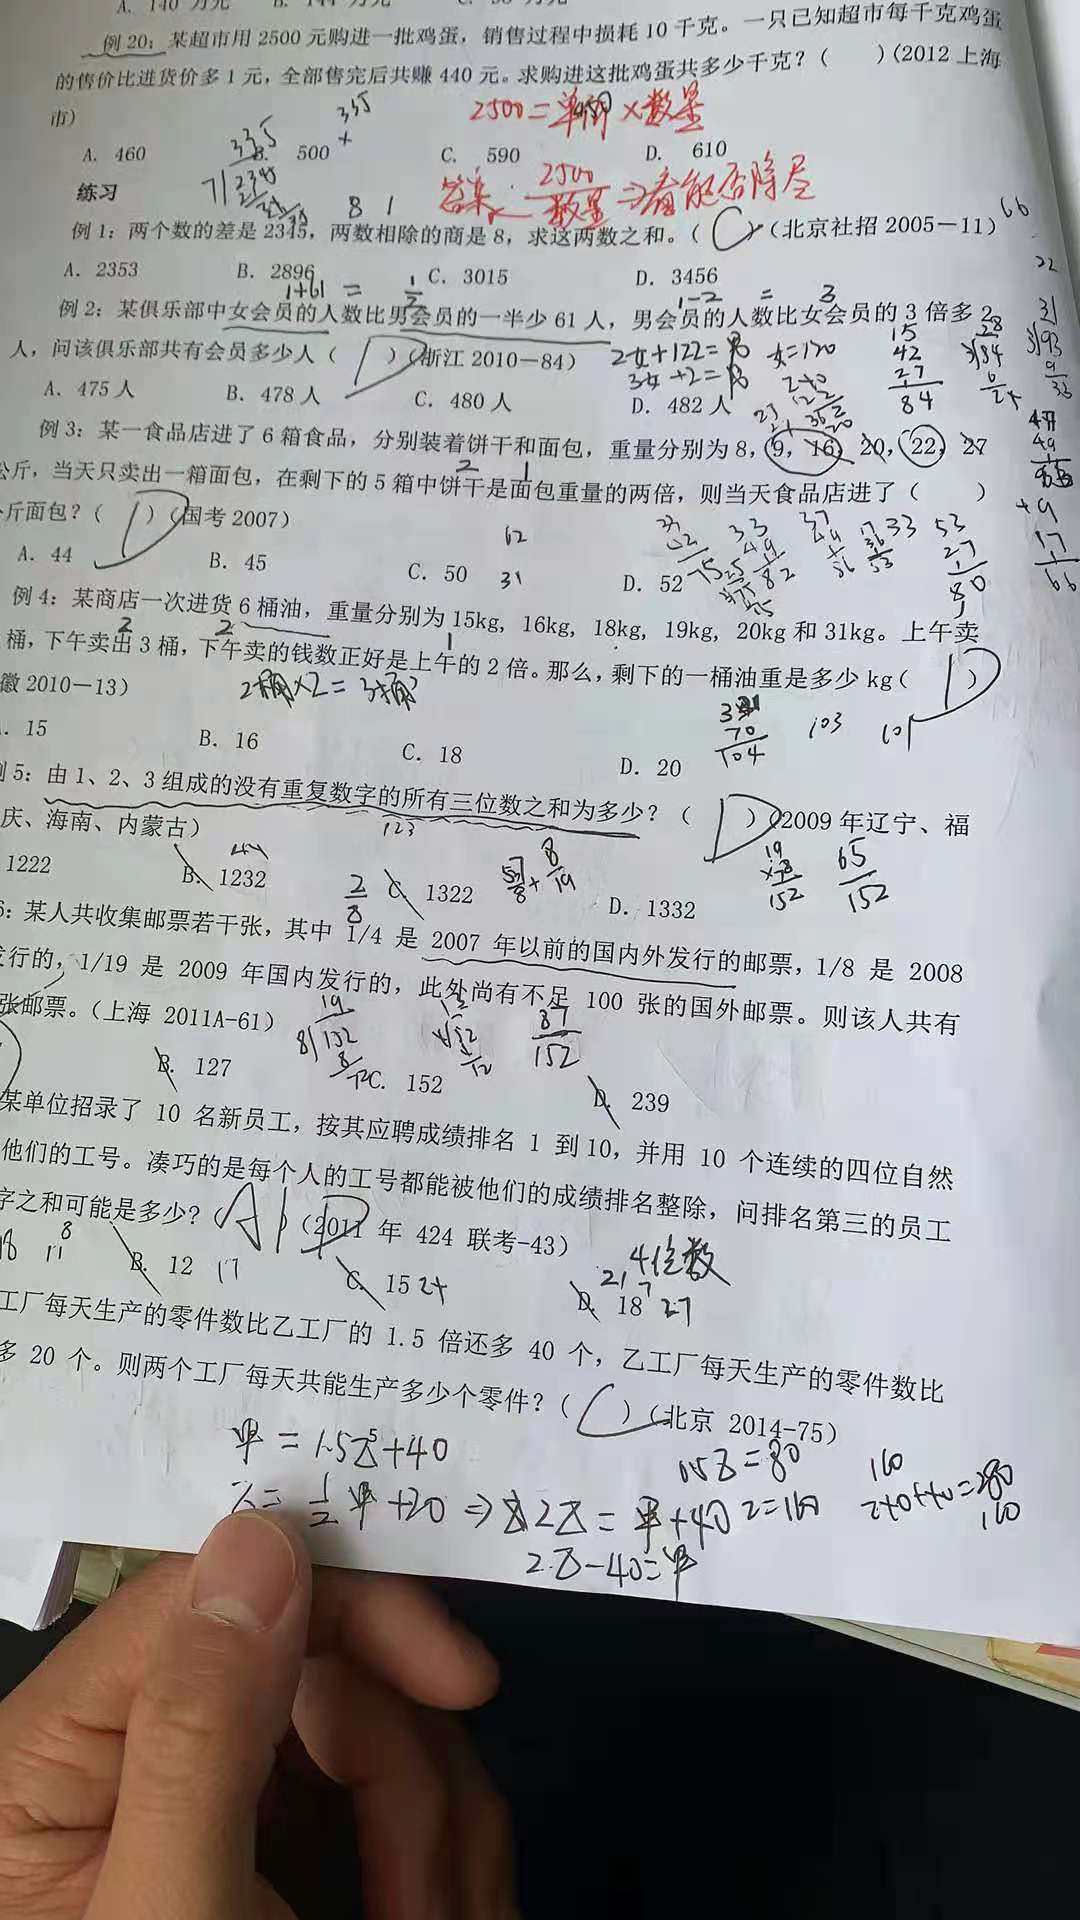 A. 140 万元 B. 144 万元
例 20：某超市用 2500 元购进一批鸡蛋，销售过程中损耗 10 千克。一只已知超市每千克鸡蛋
的售价比进货价多 1 元，全部售完后共赚 440 元。求购进这批鸡蛋共多少千克？（ ）（2012 上海
市）
2500=单价×数量
335
A. 460 B. 500 C. 590 D. 610
335
练习
答案 2500/数量⇒看能否除尽
8 1
66
例 1：两个数的差是 2345，两数相除的商是 8，求这两数之和。（ C ）（北京社招 2005－11）
A. 2353 B. 2896 C. 3015 D. 3456
1+61 = 1/2
1-2 = 3
例 2：某俱乐部中女会员的人数比男会员的一半少 61 人，男会员的人数比女会员的 3 倍多 2
人，问该俱乐部共有会员多少人（ D ）（浙江 2010－84）
2女+122=男 女=120
3女+2=男
15
42
27
84
A. 475 人 B. 478 人 C. 480 人 D. 482 人
例 3：某一食品店进了 6 箱食品，分别装着饼干和面包，重量分别为 8，9，16，20，22，27
2 1
公斤，当天只卖出一箱面包，在剩下的 5 箱中饼干是面包重量的两倍，则当天食品店进了（ ）
斤面包？（ D ）（国考 2007）
62
31
A. 44 B. 45 C. 50 D. 52
33 53
27
80
例 4：某商店一次进货 6 桶油，重量分别为 15kg, 16kg, 18kg, 19kg, 20kg 和 31kg。上午卖
2 2 1
桶，下午卖出 3 桶，下午卖的钱数正好是上午的 2 倍。那么，剩下的一桶油重是多少 kg（ D ）
徽 2010－13）
2桶×2=3桶
70
104
103 101
15 B. 16 C. 18 D. 20
5：由 1、2、3 组成的没有重复数字的所有三位数之和为多少？（ D ）（2009 年辽宁、福
123
庆、海南、内蒙古）
1222 B. 1232 C. 1322 D. 1332
2/8
8/19
19
×8
152
65/152
6：某人共收集邮票若干张，其中 1/4 是 2007 年以前的国内外发行的邮票，1/8 是 2008
发行的，1/19 是 2009 年国内发行的，此外尚有不足 100 张的国外邮票。则该人共有
张邮票。（上海 2011A-61）
19
8 152
87/152
B. 127 C. 152 D. 239
某单位招录了 10 名新员工，按其应聘成绩排名 1 到 10，并用 10 个连续的四位自然
他们的工号。凑巧的是每个人的工号都能被他们的成绩排名整除，问排名第三的员工
字之和可能是多少？（ A ）（2011 年 424 联考-43）
4位数
B. 12 17 C. 15 24 D. 18 27
工厂每天生产的零件数比乙工厂的 1.5 倍还多 40 个，乙工厂每天生产的零件数比
多 20 个。则两个工厂每天共能生产多少个零件？（ C ）（北京 2014-75）
甲=1.5乙+40
0.5乙=80
160
乙=1/2甲+20⇒2乙=甲+40 乙=160
240+40=280
160
2乙-40=甲